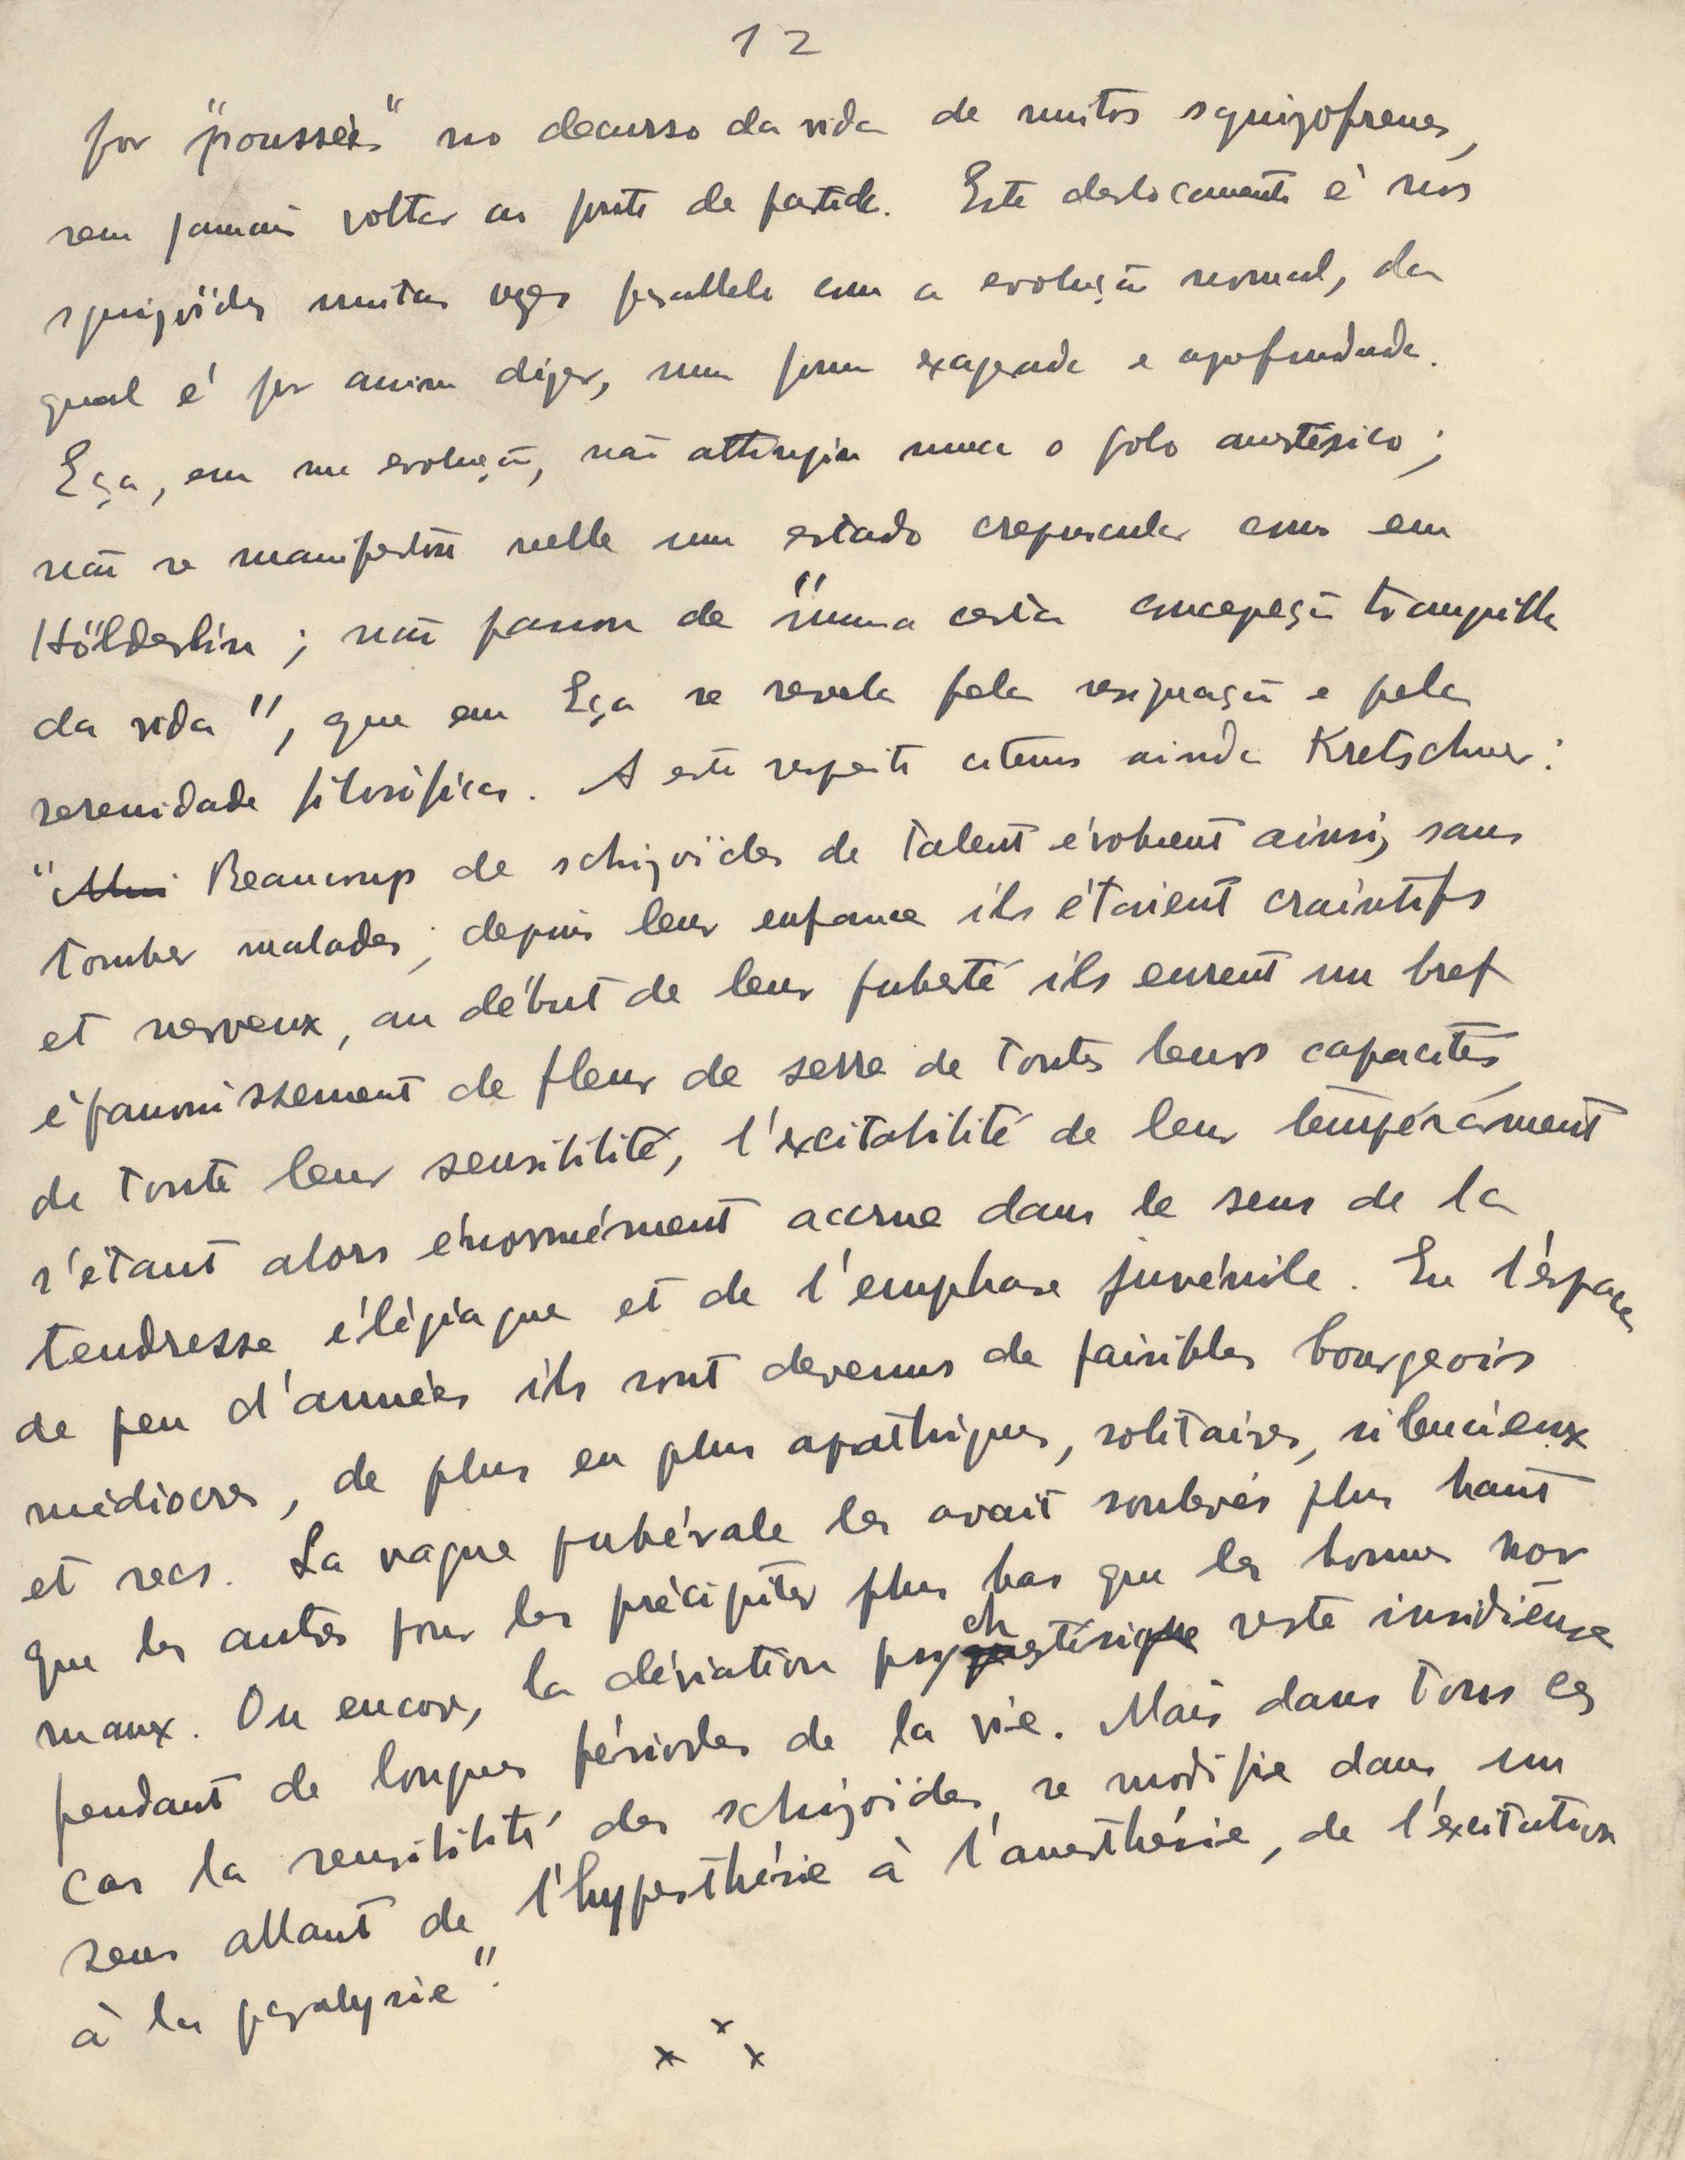 12
por "poussées" no decurso da vida de muitos squizofrenes,
sem jamais voltar ao ponto de partida. Este deslocamento é nos
squizoïdes muitas vezes parallelo com a evolução normal, da
qual é por assim dizer, uma forma exagerada e aprofundada.
Eça, em sua evolução, não attingiu nunca o polo anestésico;
não se manifestou nelle um estado crepuscular como em
Hölderlin; não passou de "numa certa concepção tranquilla
da vida", que em Eça se revela pela resignação e pela
serenidade filosóficas. A este respeito citemos ainda Kretschmer:
" Beaucoup de schizoïdes de talent évoluent ainsi, sans
tomber malades; depuis leur enfance ils étaient craintifs
et nerveux, au début de leur puberté ils eurent un bref
épanouissement de fleur de serre de toutes leurs capacités,
de toute leur sensibilité, l'excitabilité de leur tempérament
s'étant alors énormément accrue dans le sens de la
tendresse élégiaque et de l'emphase juvénile. En l'espace
de peu d'années ils sont devenus de paisibles bourgeois
médiocres, de plus en plus apathiques, solitaires, silencieux
et secs. La vague pubérale les avait soulevés plus haut
que les autres pour les précipiter plus bas que les hommes nor
maux. Ou encore, la déviation psychestésique reste insidieuse
pendant de longues périodes de la vie. Mais dans tous ces
cas la sensibilité des schizoïdes se modifie dans un
sens allant de l'hyperthésie à l'anesthésie, de l'excitation
à la paralysie".
x x x